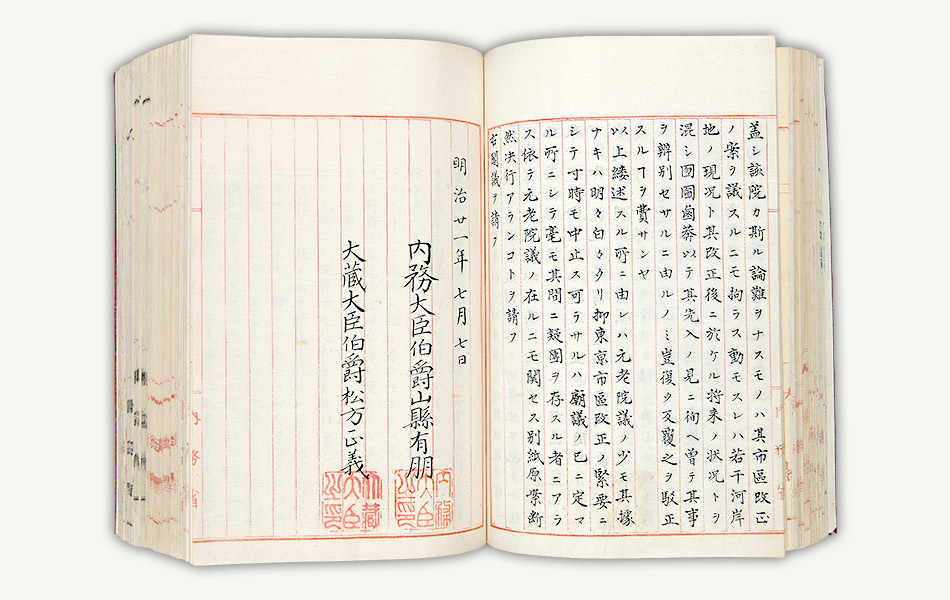 蓋シ該院カ斯ル論難ヲナスモノハ其市區改正
ノ案ヲ議スルニモ拘ラス動モスレハ若干河岸
地ノ現况ト其改正後ニ於ケル将来ノ状况トヲ
混シ囫圇鹵莽以テ其先入ノ見ニ徇ヘ曽テ其事
ヲ辨別セサルニ由ルノミ豈復タ反覆之ヲ駁正
スルヿヲ費サンヤ
以上縷述スル所ニ由レハ元老院議ノ少モ其據
ナキハ明々白々タリ抑東京市區改正ノ緊要ニ
シテ寸時モ中止ス可ラサルハ廟議ノ已ニ定マ
ル所ニシテ毫モ其間ニ疑團ヲ存スル者ニアラ
ス依テ元老院議ノ在ルニモ関セス別紙原案断
然决行アランコトヲ請フ
右閣議ヲ請フ
明治廿一年七月七日
内務大臣伯爵山縣有朋
内務大臣之印
大蔵大臣伯爵松方正義
大藏大臣之印